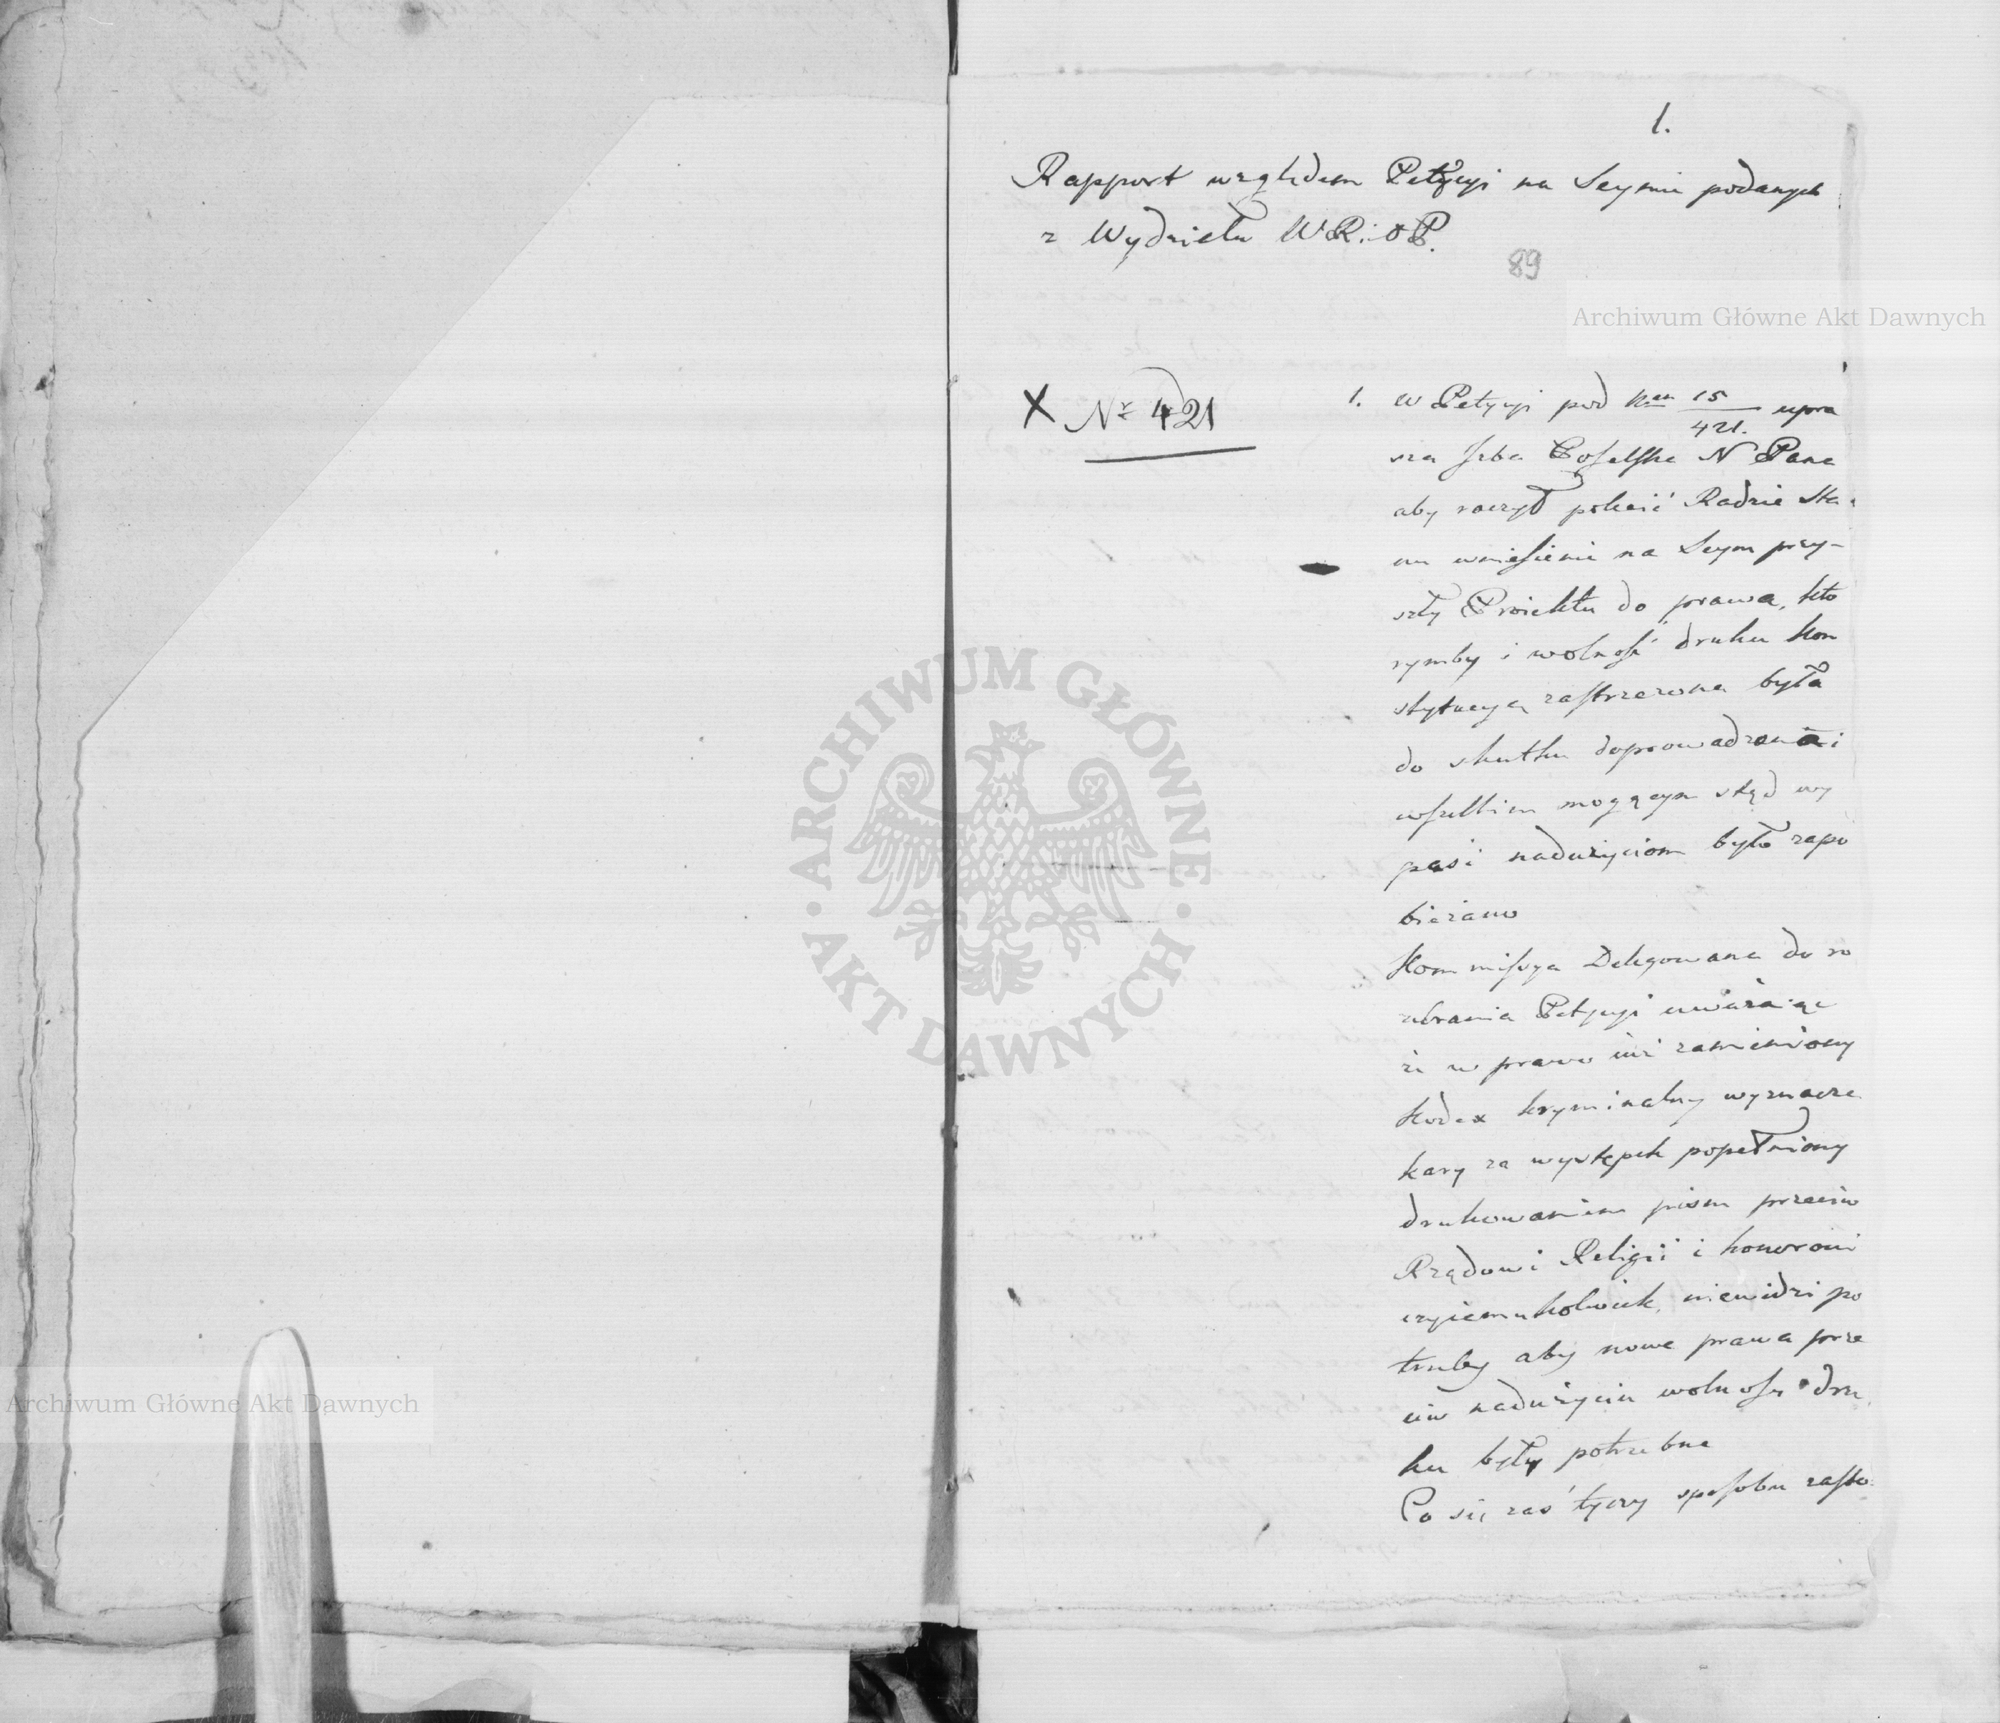 1.
Rapport względem Petycyi na Seymie podanych
z Wydziału W.R. i O.P.
89
Archiwum Główne Akt Dawnych
X Nr 421
1. W Petycyi pod Nem 15/421. upra
sza Izba Poselska N Pana
aby raczył polecić Radzie Sta
nu wniesienie na Seym przy-
szły Proiektu do prawa, któ
rymby i wolność druku kon
stytucyą zastrzeżona była
do skutku doprowadzona i
wszelkim mogącym stąd wy
paść nadużyciom było zapo
bieżano
Kommissya Delegowana do ro
zebrania Petycyi uważaiąc
że w prawo iuż zamieniony
Kodex kryminalny wyznacza
kary za występek popełniony
drukowaniem pism przeciw
Rządowi Religii i honorowi
czyiemukolwiek, niewidzi po
trzeby aby nowe prawa prze
ciw nadużyciu wolności dru
ku były potrzebne
Co się zaś tyczy sposobu zasto
ARCHIWUM GŁÓWNE AKT DAWNYCH
Archiwum Główne Akt Dawnych